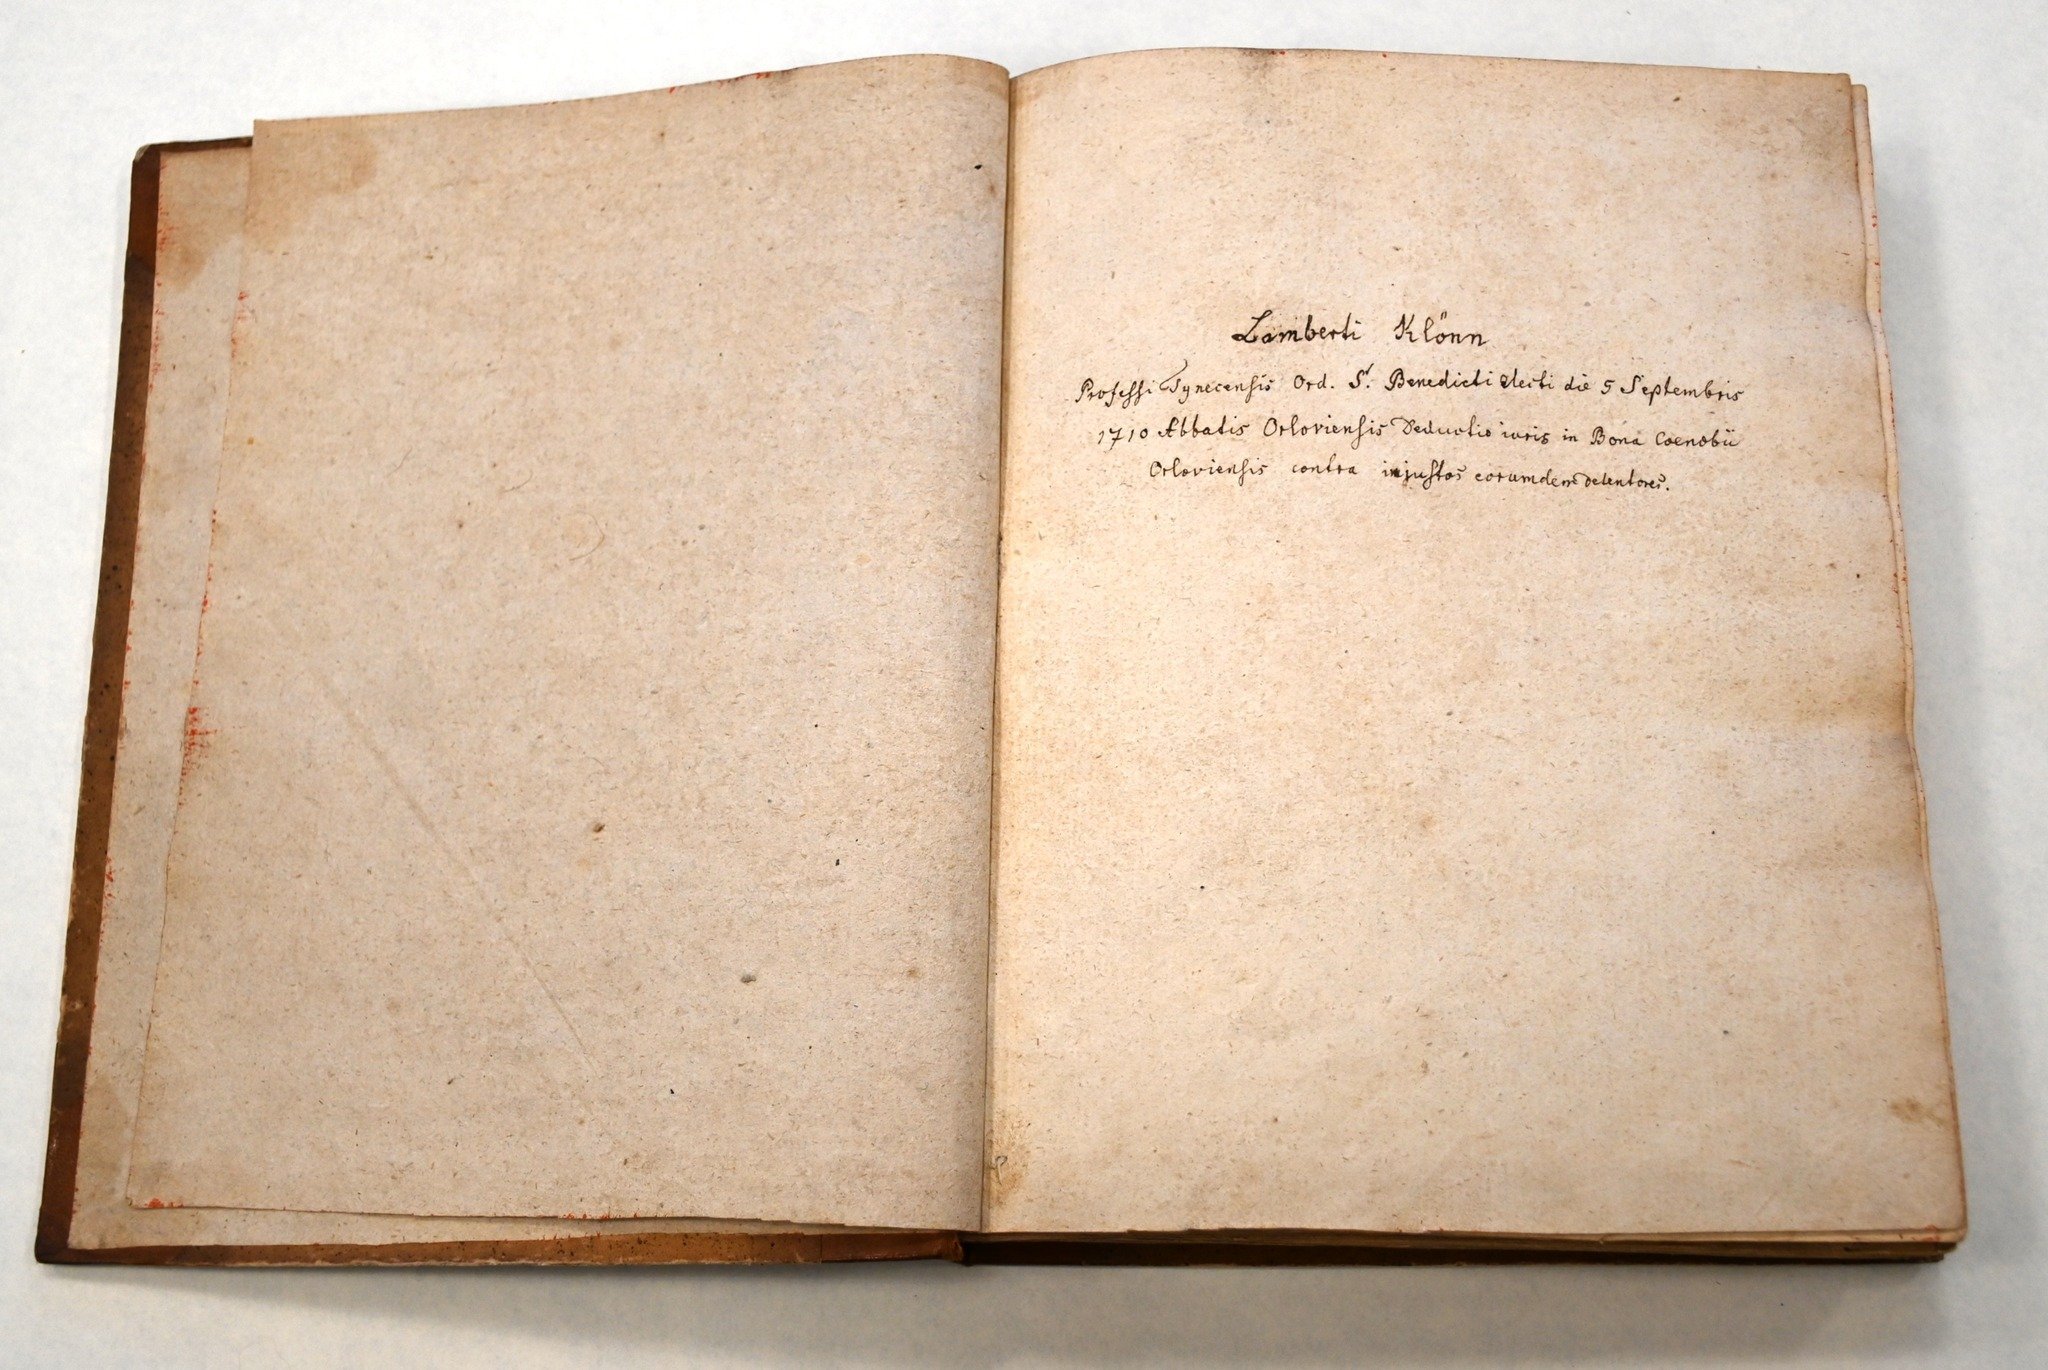 Lamberti Klönn
Professi Tynecensis Ord. S. Benedicti electi die 5 Septembris
1710 Abbatis Orloviensis Deductio iuris in Bona Coenobii
Orloviensis contra injustos eorumdem detentores.